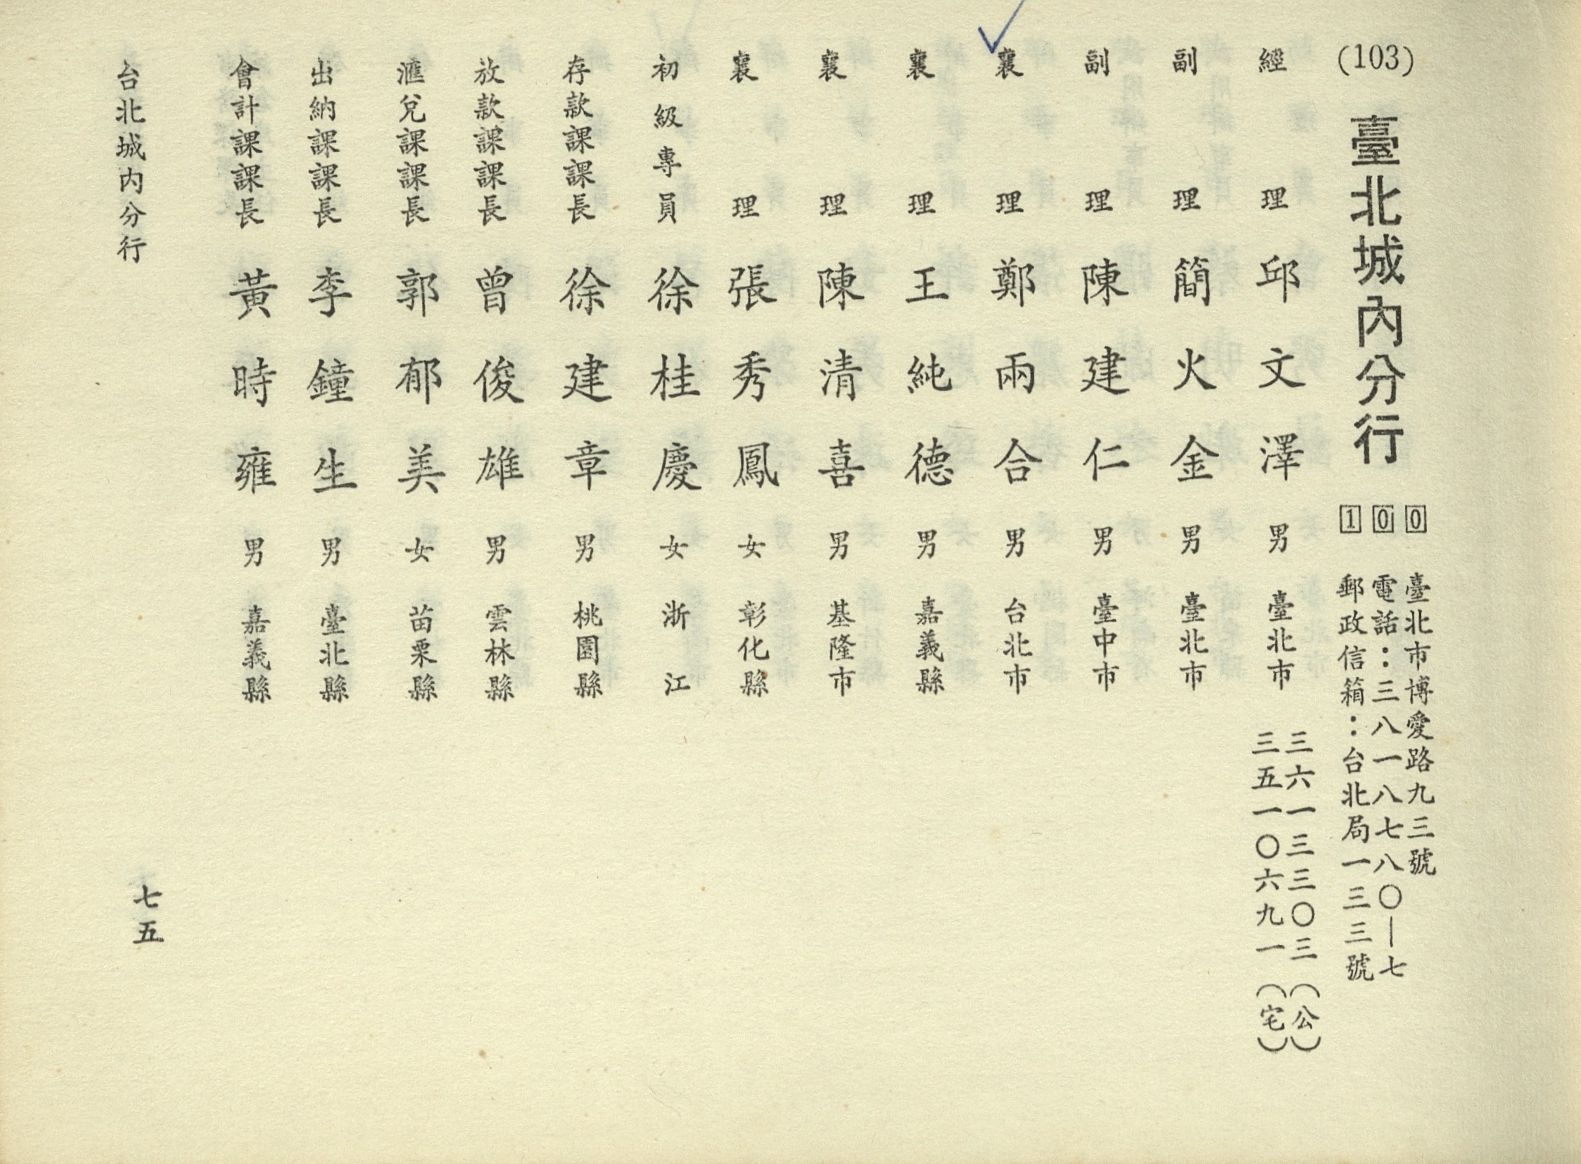 (103)
臺北城內分行
100
臺北市博愛路九三號
電話：三八一八七八〇—七
郵政信箱：台北局一三三號
經理 邱文澤 男 臺北市 三六一三三〇三（公）
三五一〇六九一（宅）
副理 簡火金 男 臺北市
副理 陳建仁 男 臺中市
襄理 鄭兩合 男 台北市
襄理 王純德 男 嘉義縣
襄理 陳清喜 男 基隆市
襄理 張秀鳳 女 彰化縣
初級專員 徐桂慶 女 浙江
存款課課長 徐建章 男 桃園縣
放款課課長 曾俊雄 男 雲林縣
滙兌課課長 郭郁美 女 苗栗縣
出納課課長 李鐘生 男 臺北縣
會計課課長 黃時雍 男 嘉義縣
台北城內分行
七五